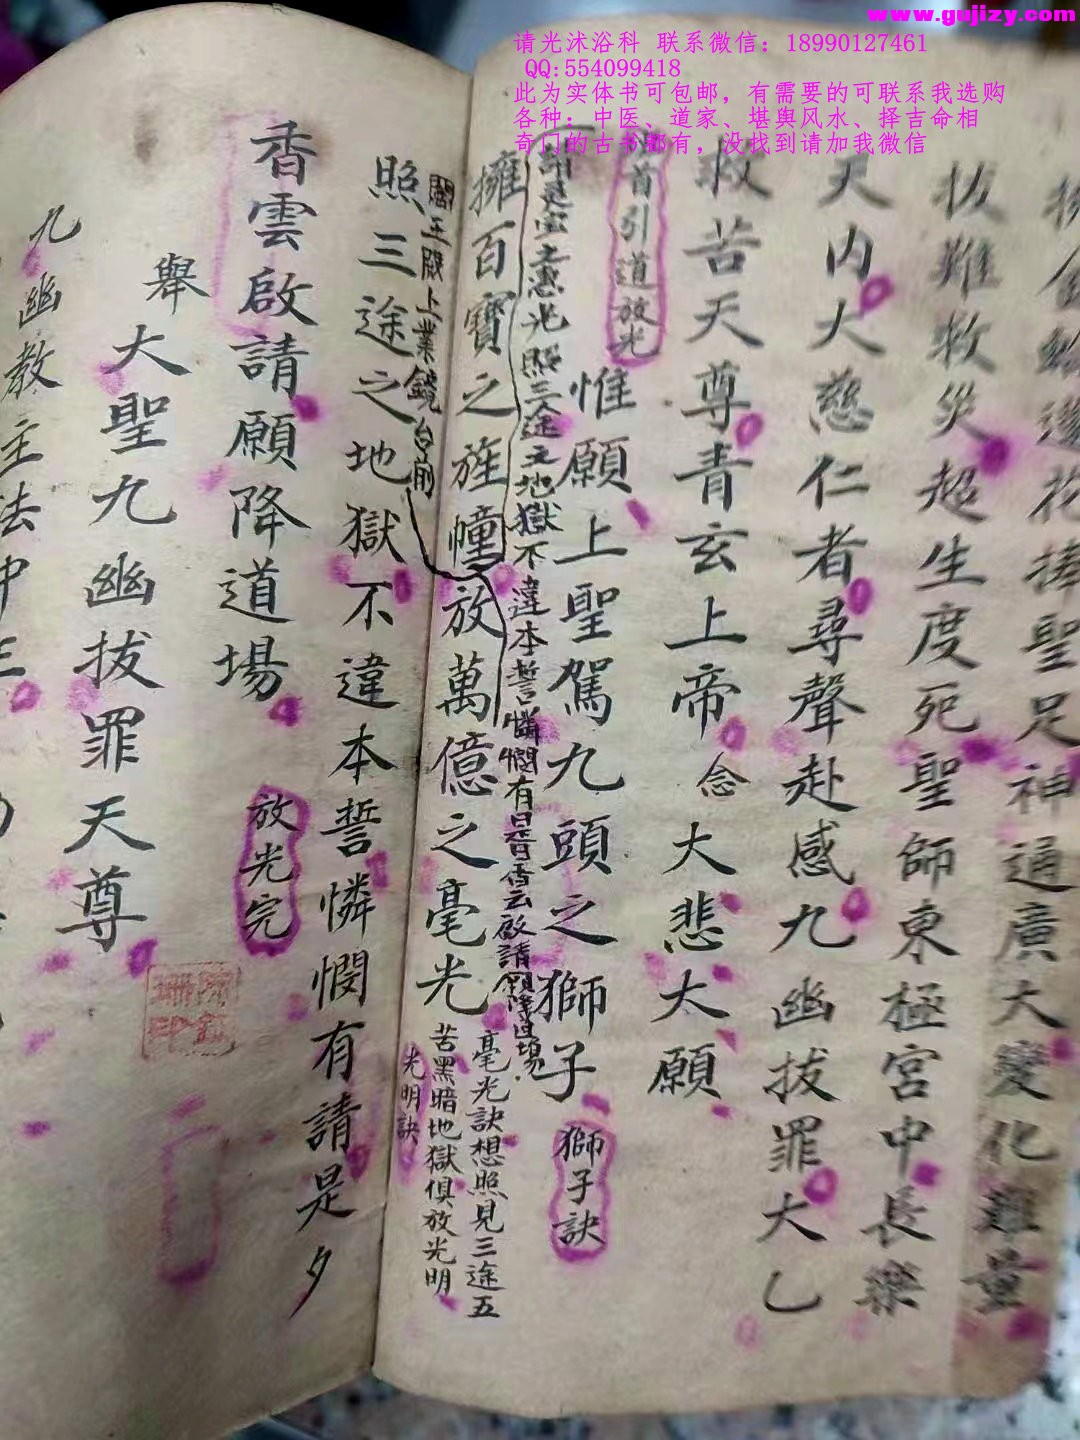 www.gujizy.com
请光沐浴科 联系微信：18990127461
QQ:554099418
此为实体书可包邮，有需要的可联系我选购
各种：中医、道家、堪舆风水、择吉命相
奇门的古书都有，没找到请加我微信
蓮花捧聖足神通廣大變化難量
拔難救災超生度死聖師東極宮中長樂
天内大慈仁者尋聲赴感九幽拔罪大乙
救苦天尊青玄上帝念大悲大願
首引道放光
惟願上聖駕九頭之獅子獅子訣
光照三途之地獄不違本誓憐憫有
香云啟請願降道場
擁百寶之旌幢放萬億之毫光
毫光訣想照見三途五
苦黑暗地獄俱放光明
光明訣
閻王殿上業鏡台前
照三途之地獄不違本誓憐憫有請是夕
香雲啟請願降道場放光完
舉
大聖九幽拔罪天尊
九幽教主法中